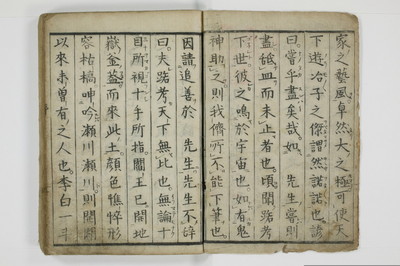 家之藝風卓然大之極可使天
下遊冶子之傑謂然諾諾也諺
曰嘗乎盡矣哉如　先生嘗則
盡舐皿而未止者也頃閱臨考
下世彼之鳴於宇宙也如有鬼
神助之則我儕所不能下筆也
因請追善於　先生先生不辞
曰夫臨考天下無比也無論十
目所視十手所指閻王已開地
獄釜蓋而來此土顔色憔悴形
容枯槁呻吟瀬川瀬川則開闢
以來未曽有之人也李白一斗